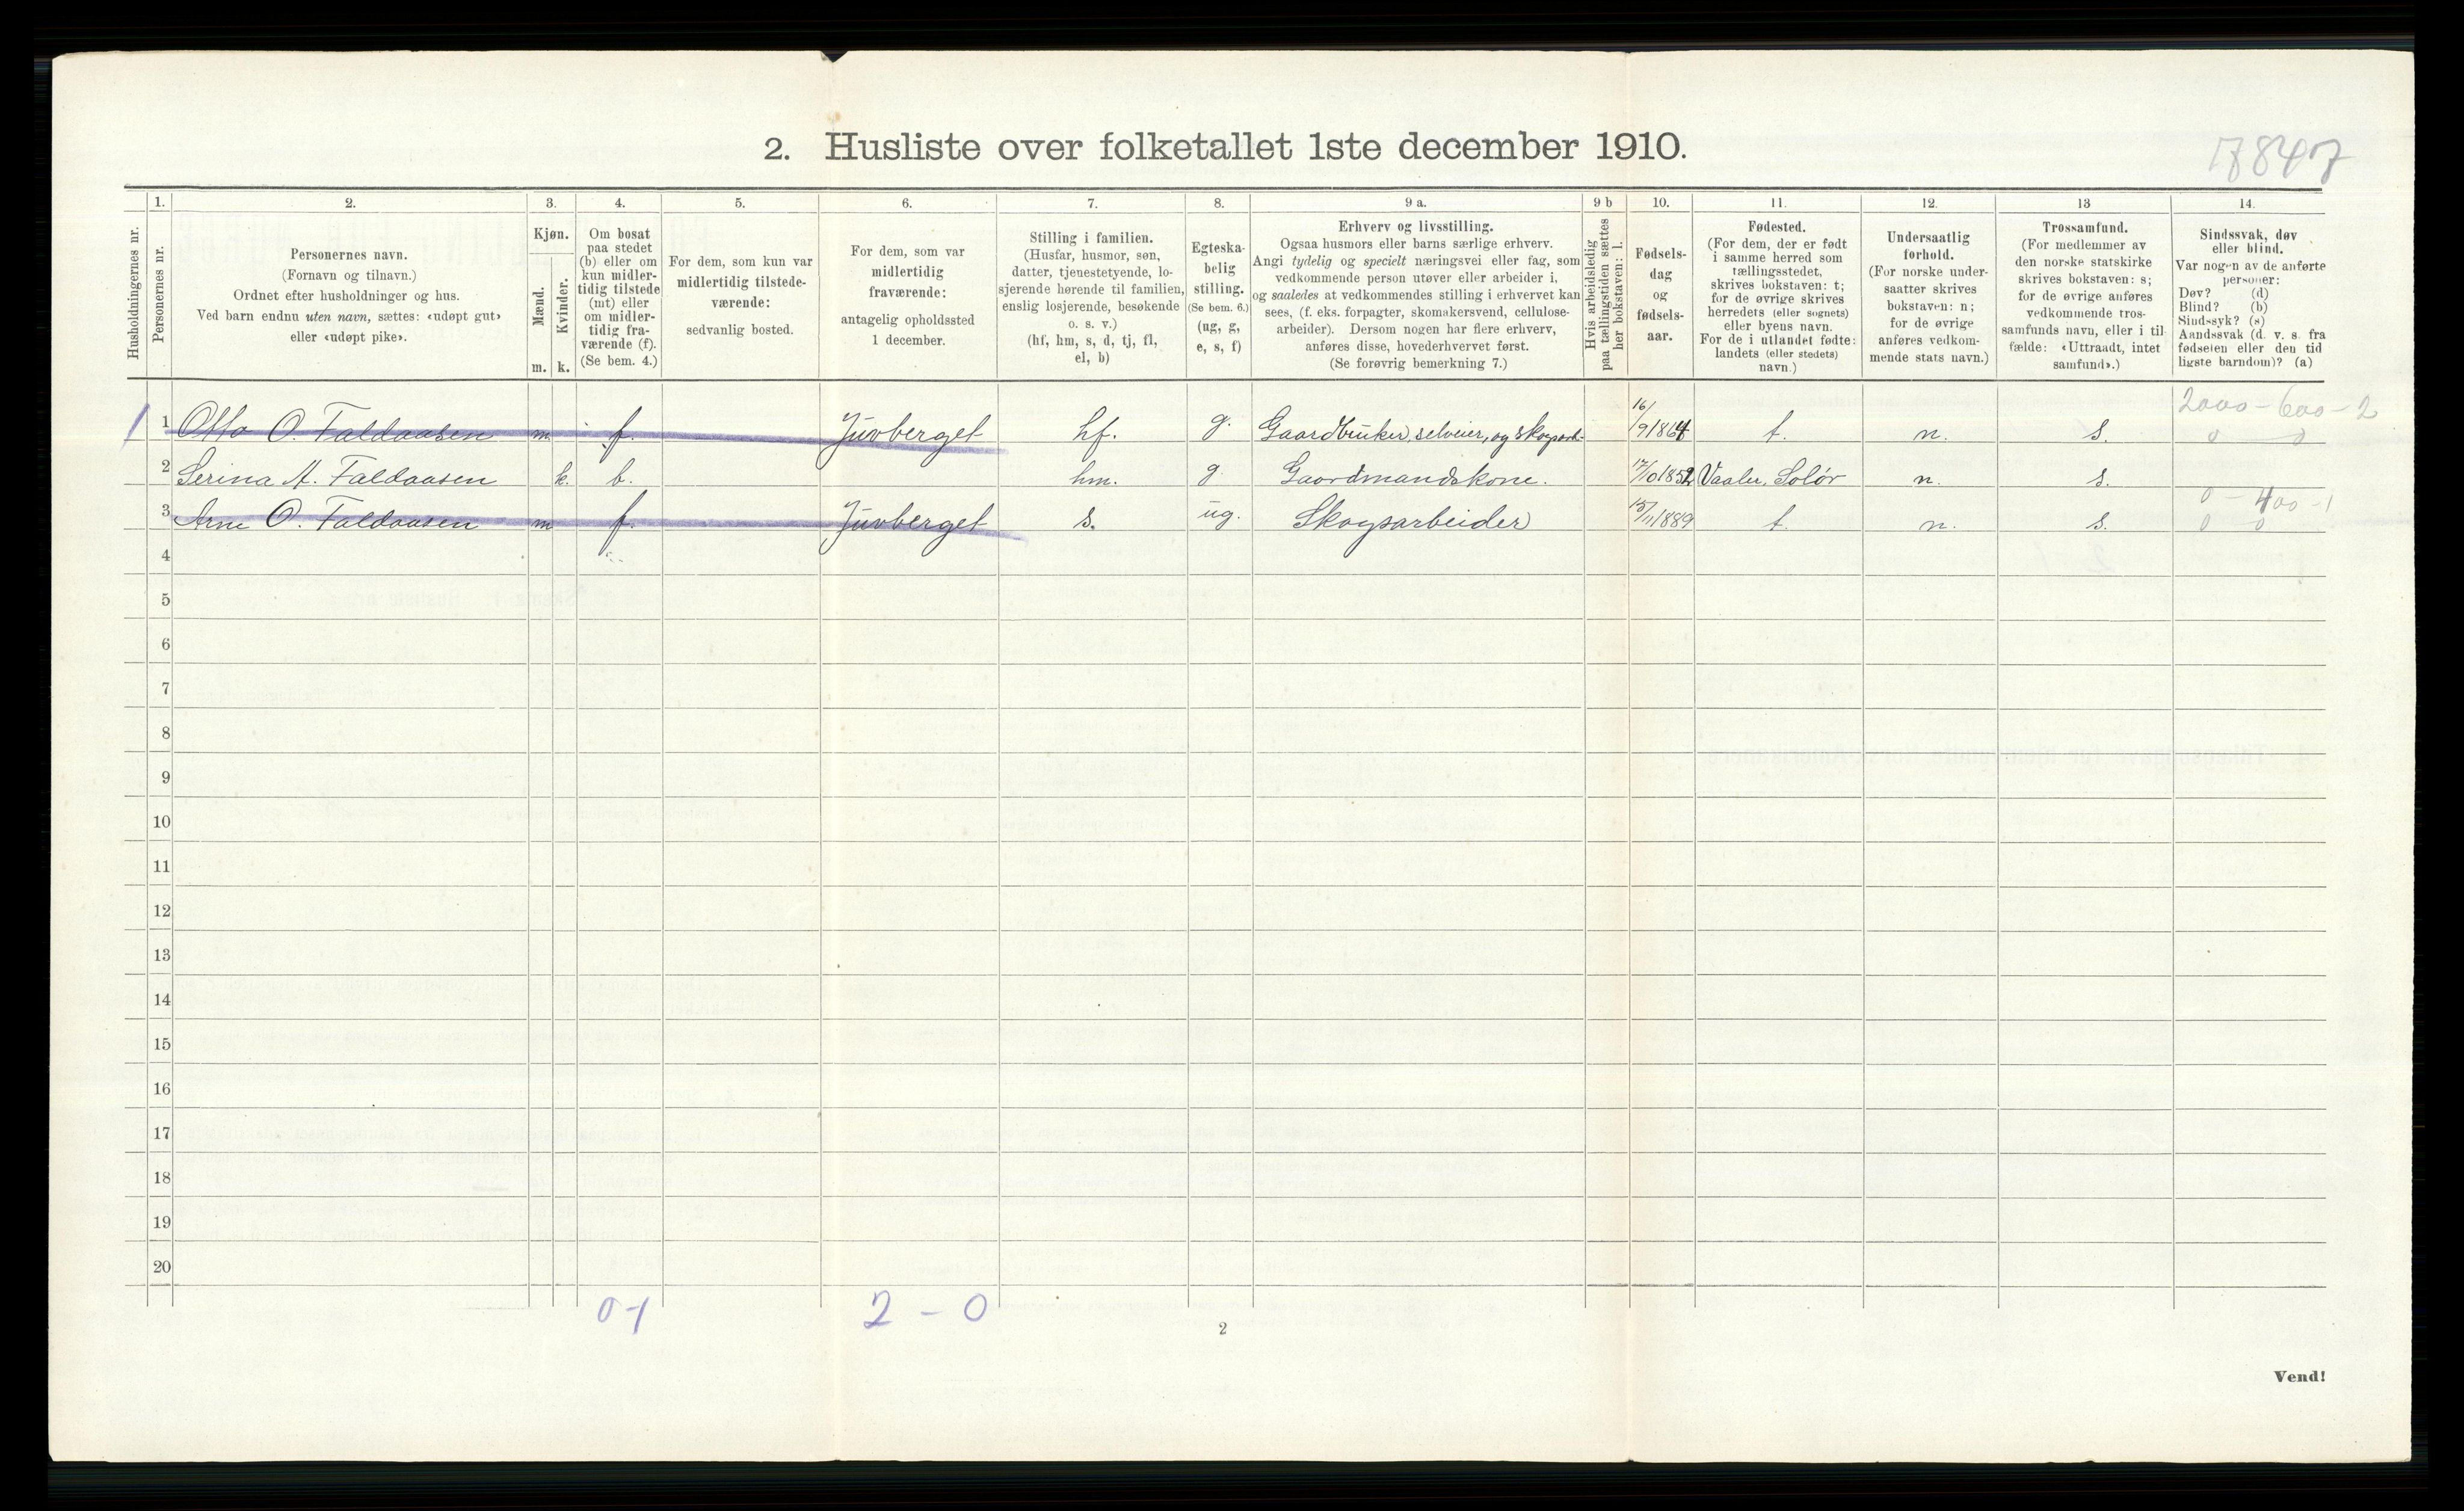 2. Husliste over folketallet 1ste december 1910.
17847
Husholdningernes nr.
1.
Personernes nr.
2.
Personernes navn.
(Fornavn og tilnavn.)
Ordnet efter husholdninger og hus.
Ved barn endnu uten navn, sættes: «udøpt gut»
eller «udøpt pike».
3.
Kjøn.
Mænd.
Kvinder.
m. k.
4.
Om bosat
paa stedet
(b) eller om
kun midler-
tidig tilstede
(mt) eller
om midler-
tidig fra-
værende (f).
(Se bem. 4.)
5.
For dem, som kun var
midlertidig tilstede-
værende:
sedvanlig bosted.
6.
For dem, som var
midlertidig
fraværende:
antagelig opholdssted
1 december.
7.
Stilling i familien.
(Husfar, husmor, søn,
datter, tjenestetyende, lo-
sjerende hørende til familien,
enslig losjerende, besøkende
o. s. v.)
(hf, hm, s, d, tj, fl,
el, b)
8.
Egteska-
belig
stilling.
(Se bem. 6.)
(ug, g,
e, s, f)
9 a.
Erhverv og livsstilling.
Ogsaa husmors eller barns særlige erhverv.
Angi tydelig og specielt næringsvei eller fag, som
vedkommende person utøver eller arbeider i,
og saaledes at vedkommendes stilling i erhvervet kan
sees, (f. eks. forpagter, skomakersvend, cellulose-
arbeider). Dersom nogen har flere erhverv,
anføres disse, hovederhvervet først.
(Se forøvrig bemerkning 7.)
9 b
Hvis arbeidsledig
paa tællingstiden sættes
her bokstaven: l.
10.
Fødsels-
dag
og
fødsels-
aar.
11.
Fødested.
(For dem, der er født
i samme herred som
tællingsstedet,
skrives bokstaven: t;
for de øvrige skrives
herredets (eller sognets)
eller byens navn.
For de i utlandet fødte:
landets (eller stedets)
navn.)
12.
Undersaatlig
forhold.
(For norske under-
saatter skrives
bokstaven: n;
for de øvrige
anføres vedkom-
mende stats navn.)
13
Trossamfund.
(For medlemmer av
den norske statskirke
skrives bokstaven: s;
for de øvrige anføres
vedkommende tros-
samfunds navn, eller i til
fælde: «Uttraadt, intet
samfund».)
14.
Sindssvak, døv
eller blind.
Var nogen av de anførte
personer:
Døv? (d)
Blind? (b)
Sindssyk? (s)
Aandssvak (d. v. s. fra
fødselen eller den tid
ligste barndom)? (a)
2000 - 600 - 2
1 1 Otto O. Faldaasen m f. Juvberget hf. g. Gaardbruker, selveier, og skogsarb. 16/9 1864 t. n. s. 0 0
2 Serina A. Faldaasen k. b. hm. g. Gaardmandskone. 17/10 1852 Vaaler, Solør n. s.
0 - 400 - 1
3 Arne O. Faldaasen m f. Juvberget s. ug. Skogsarbeider 15/11 1889 t. n. s. 0 0
4
5
6
7
8
9
10
11
12
13
14
15
16
17
18
19
20
0-1 2 - 0
2
Vend!